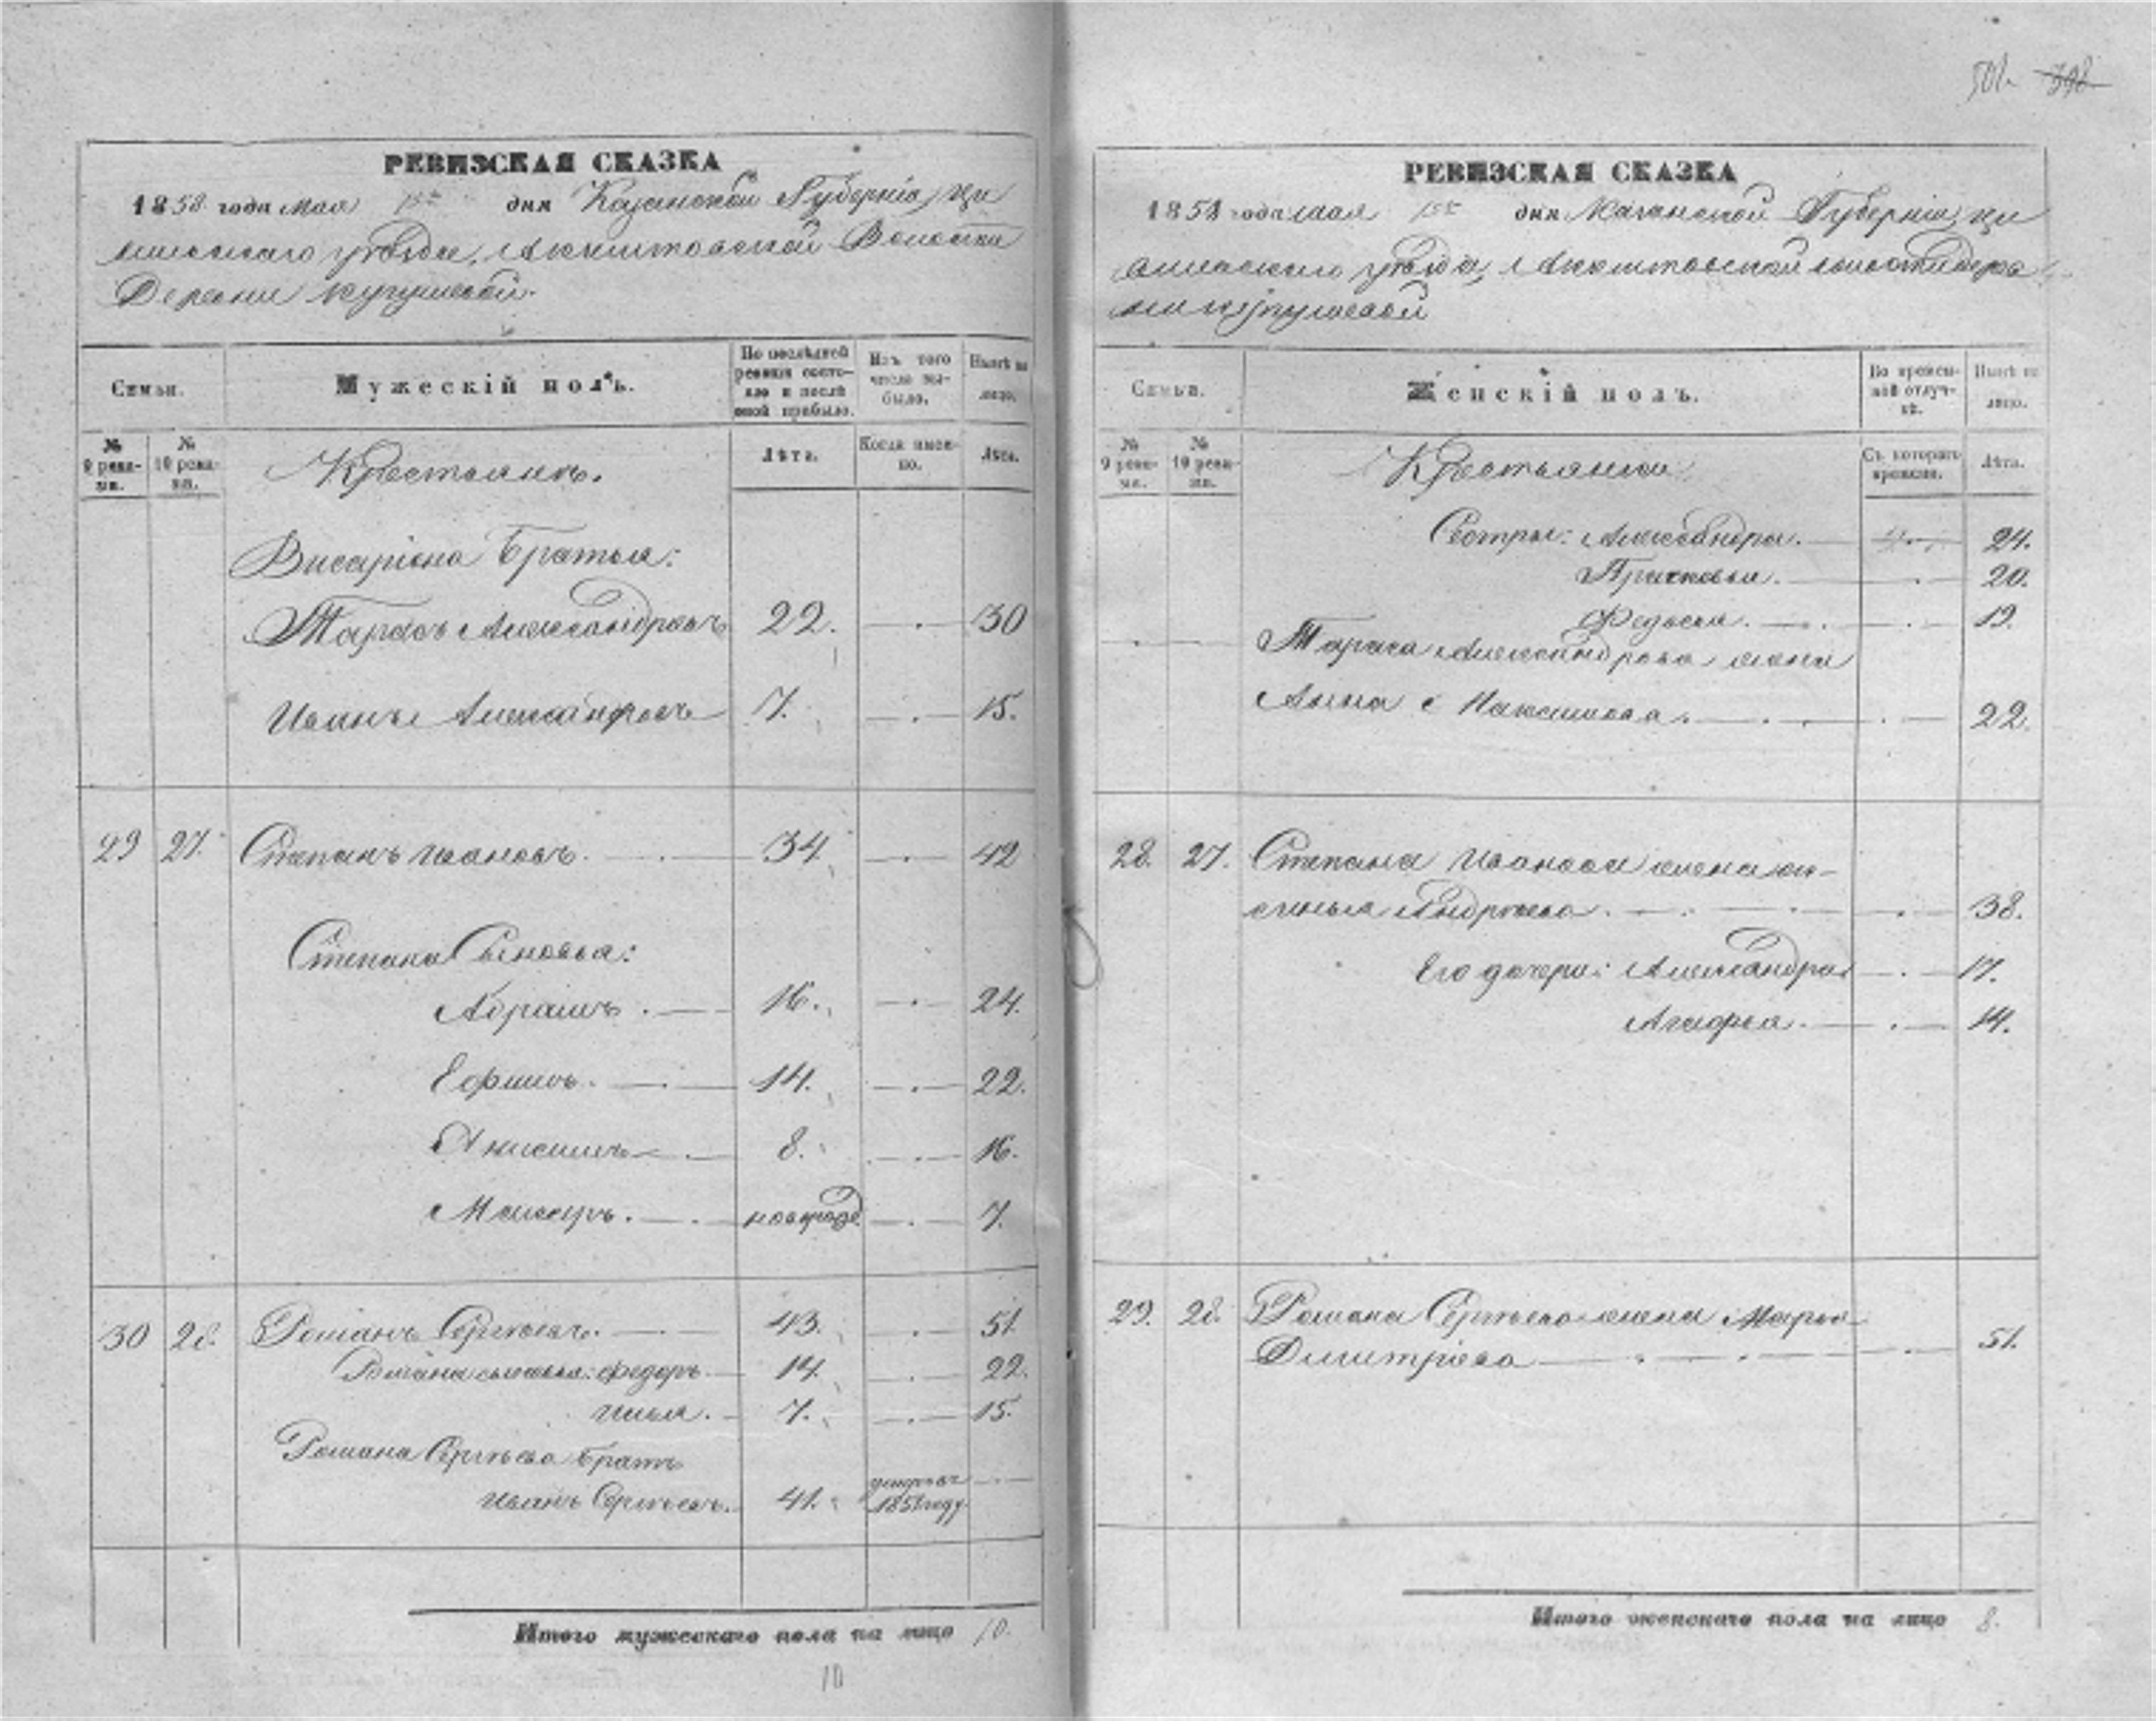 501. 398
РЕВИЗСКАЯ СКАЗКА
1858 года Мая дня Казанской Губерніи, Ци
вильскаго уѣзда, Акишевской Волости
Деревни Кугушевой.
Семьи. Мужескій полъ. По послѣдней ревизіи состояло и послѣ оной прибыло. Изъ того числа выбыло. Нынѣ на лицо.
№ 9 ревизіи. № 10 ревизіи. Крестьянъ. Лѣта. Когда именно. Лѣта.
Висаріона Братья:
Тарасъ Александровъ 22. 30
Иванъ Александровъ 7. 15.
29 27. Степанъ Ивановъ. 34. 42
Степана Сыновья:
Абрамъ. 16. 24.
Ефимъ. 14. 22.
Анисимъ 8. 16.
новорожд. 7.
30 28. Романъ Сергѣевъ. 43. 51
Романа сыновья: Федоръ. 14. 22.
Илья. 7. 15.
Романа Сергѣева братъ
Иванъ Сергѣевъ. 41. умеръ въ 1851 году
Итого мужескаго пола на лицо 10.
10
РЕВИЗСКАЯ СКАЗКА
1858 года мая дня Казанской Губерніи, Ци
вильскаго уѣзда, волости дере
вни Кугушевой
Семьи. Женскій полъ. Во временной отлучкѣ. Нынѣ на лицо.
№ 9 ревизіи. № 10 ревизіи. Крестьянки Съ котораго времени. Лѣта.
Сестры: Александра. 24.
Прасковья. 20.
Федосья. 19.
Тараса Александрова жена
Анна Максимова. 22.
28. 27. Степана Иванова жена Ак-
синья Андреева. 38.
Его дочери: Александра 17.
Агафья. 14.
29. 28. Романа Сергѣева жена Марья
Димитріева 51.
Итого женскаго пола на лицо 8.